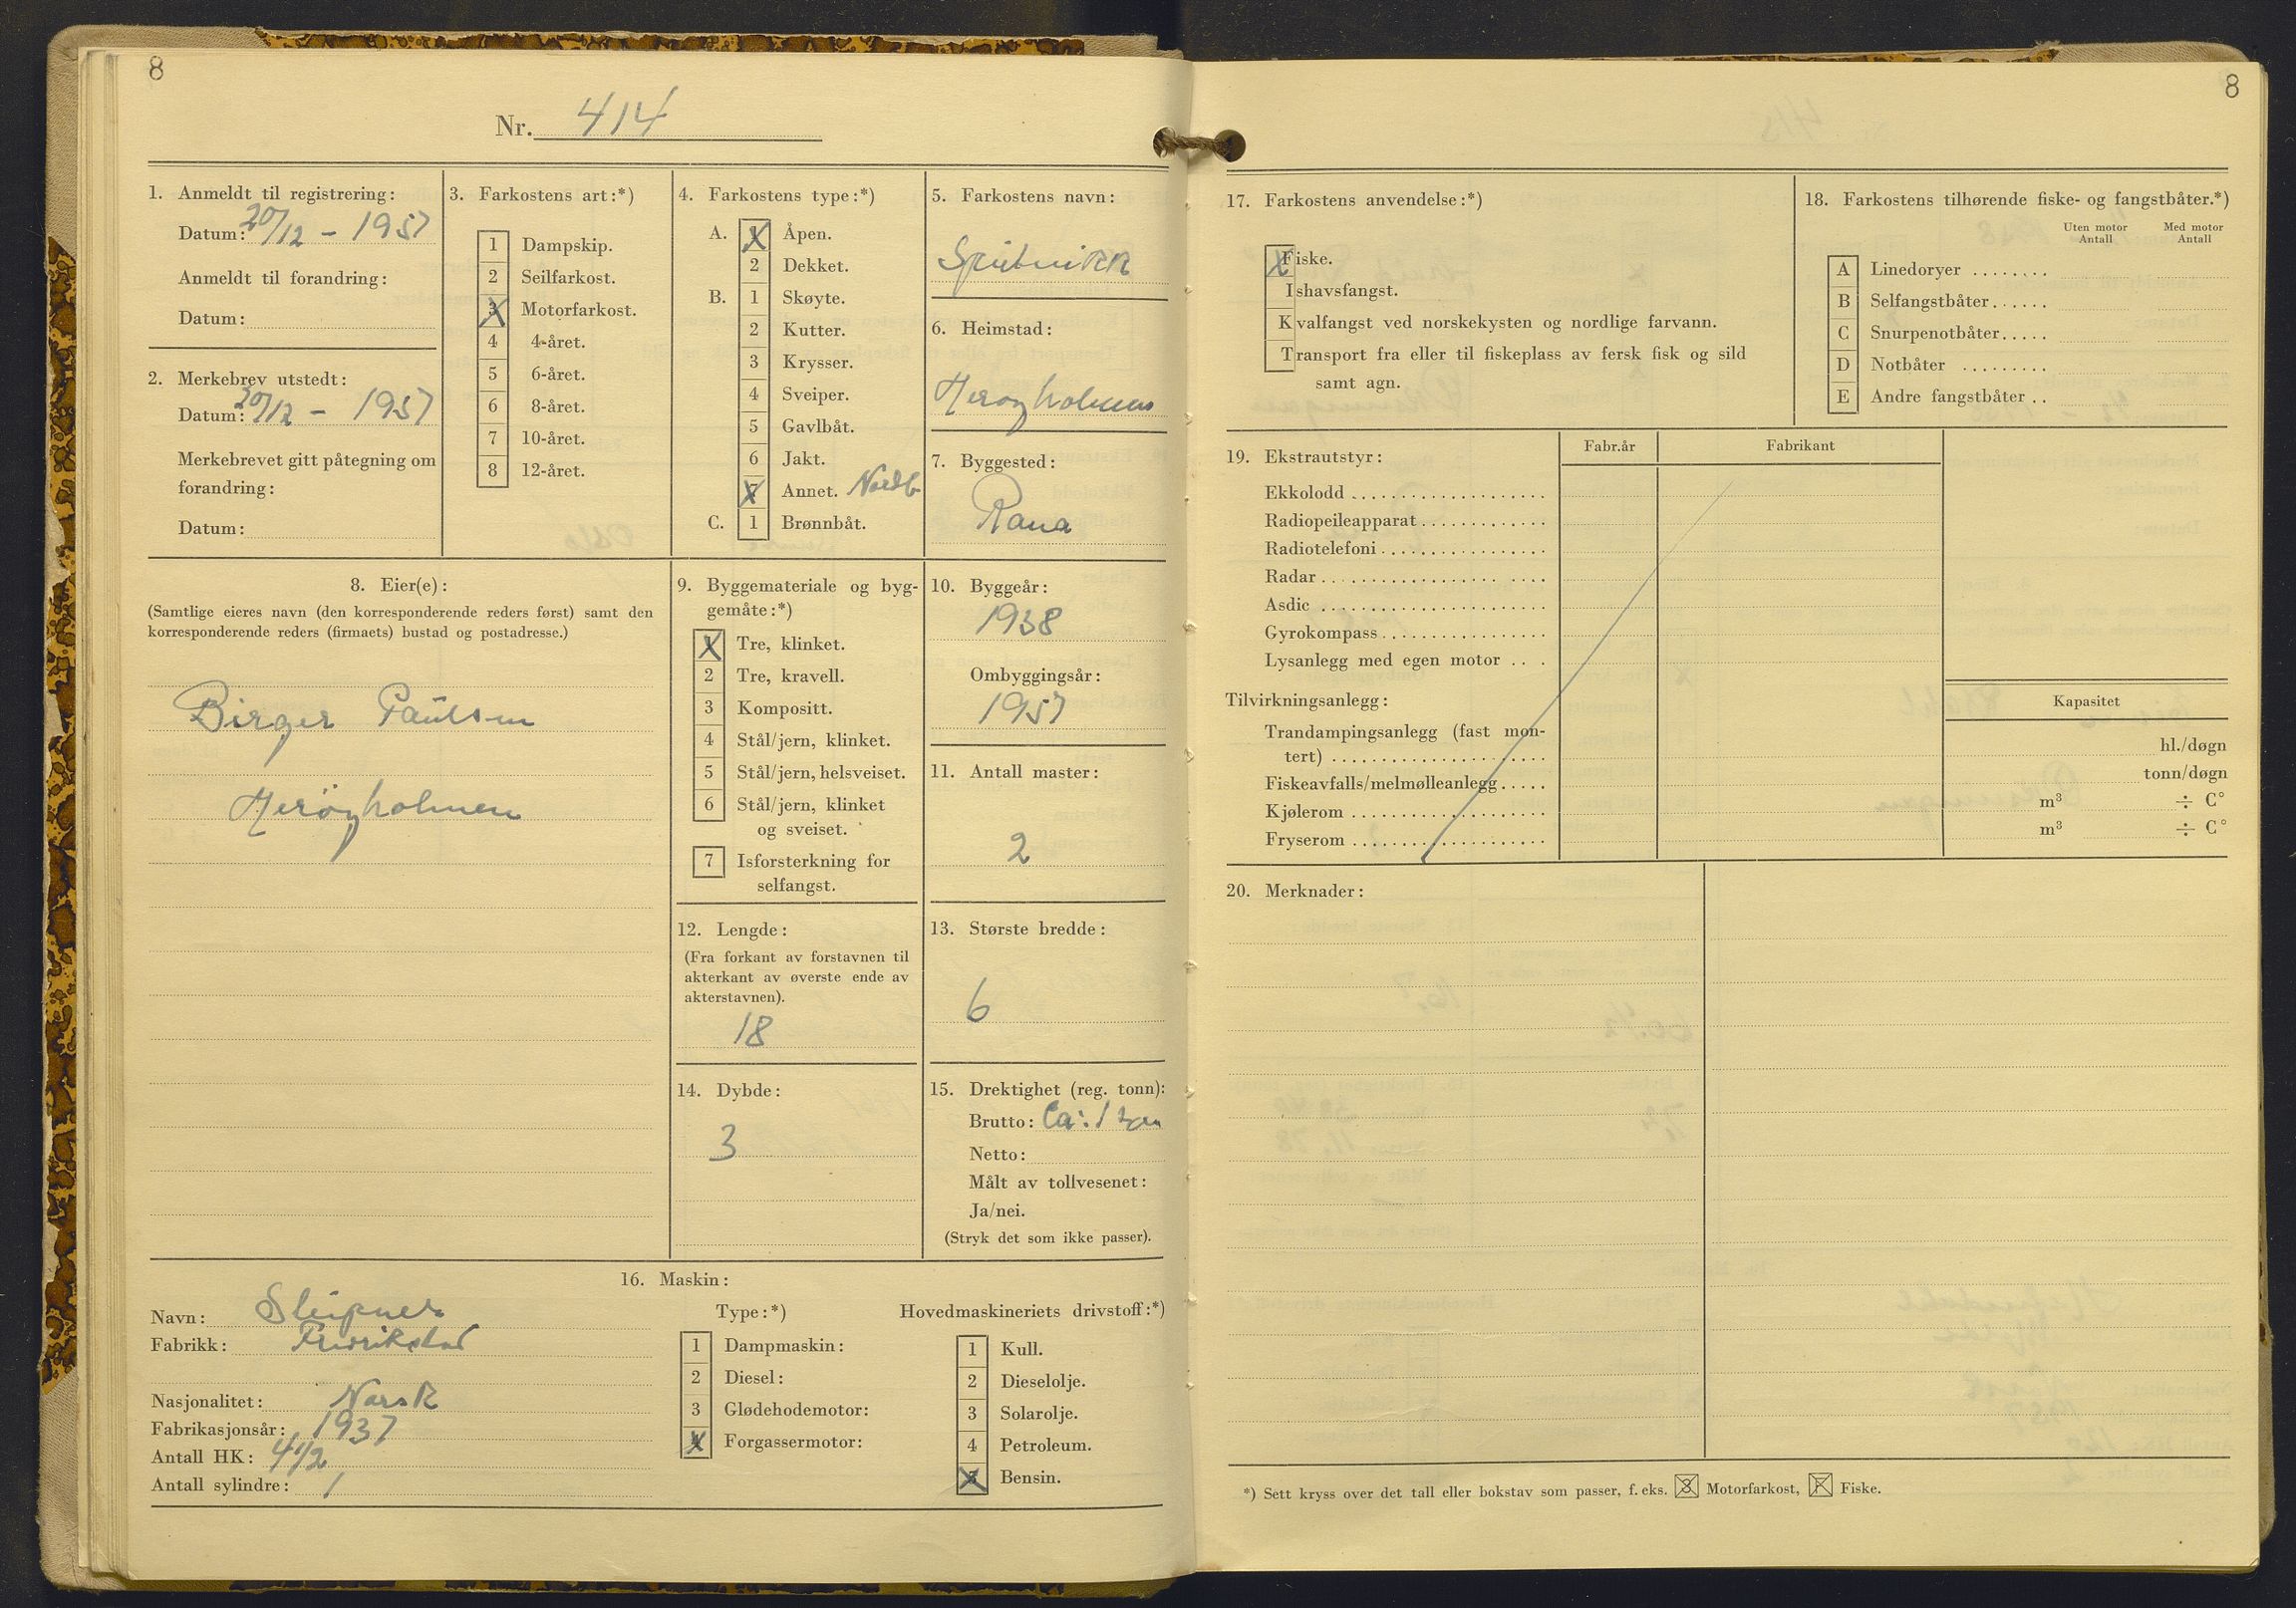 8
Nr. 414
1. Anmeldt til registrering:
Datum: 20/12 - 1957
Anmeldt til forandring:
Datum:
2. Merkebrev utstedt:
Datum: 20/12 - 1957
Merkebrevet gitt påtegning om
forandring:
Datum:
3. Farkostens art:*)
1 Dampskip.
2 Seilfarkost.
3 Motorfarkost.
4 4-året.
5 6-året.
6 8-året.
7 10-året.
8 12-året.
4. Farkostens type:*)
A. 1 Åpen.
2 Dekket.
B. 1 Skøyte.
2 Kutter.
3 Krysser.
4 Sveiper.
5 Gavlbåt.
6 Jakt.
7 Annet. Nordl.
C. 1 Brønnbåt.
5. Farkostens navn:
Sputnikk
6. Heimstad:
Herøyholmen
7. Byggested:
Rana
8. Eier(e):
(Samtlige eieres navn (den korresponderende reders først) samt den
korresponderende reders (firmaets) bustad og postadresse.)
Birger Paulsen
Herøyholmen
9. Byggemateriale og byg-
gemåte:*)
1 Tre, klinket.
2 Tre, kravell.
3 Kompositt.
4 Stål/jern, klinket.
5 Stål/jern, helsveiset.
6 Stål/jern, klinket
og sveiset.
7 Isforsterkning for
selfangst.
10. Byggeår:
1938
Ombyggingsår:
1957
11. Antall master:
2
12. Lengde:
(Fra forkant av forstavnen til
akterkant av øverste ende av
akterstavnen).
18
13. Største bredde:
6
14. Dybde:
3
15. Drektighet (reg. tonn):
Brutto: Ca: 1 tonn
Netto:
Målt av tollvesenet:
Ja/nei.
(Stryk det som ikke passer).
16. Maskin:
Navn: Sleipner
Fabrikk: Fredrikstad
Nasjonalitet: Norsk
Fabrikasjonsår: 1937
Antall HK: 4 1/2
Antall sylindre: 1
Type:*)
1 Dampmaskin:
2 Diesel:
3 Glødehodemotor:
4 Forgassermotor:
Hovedmaskineriets drivstoff:*)
1 Kull.
2 Dieselolje.
3 Solarolje.
4 Petroleum.
5 Bensin.
8
17. Farkostens anvendelse:*)
Fiske.
Ishavsfangst.
Kvalfangst ved norskekysten og nordlige farvann.
Transport fra eller til fiskeplass av fersk fisk og sild
samt agn.
18. Farkostens tilhørende fiske- og fangstbåter.*)
Uten motor Med motor
Antall Antall
A Linedoryer ........
B Selfangstbåter......
C Snurpenotbåter.....
D Notbåter .........
E Andre fangstbåter ..
19. Ekstrautstyr:
Fabr.år Fabrikant
Ekkolodd
Radiopeileapparat
Radiotelefoni
Radar
Asdic
Gyrokompass
Lysanlegg med egen motor
Tilvirkningsanlegg:
Kapasitet
Trandampingsanlegg (fast mon-
tert) hl./døgn
Fiskeavfalls/melmølleanlegg..... tonn/døgn
Kjølerom m³ ÷ C°
Fryserom m³ ÷ C°
20. Merknader:
*) Sett kryss over det tall eller bokstav som passer, f. eks. 3 Motorfarkost, F Fiske.